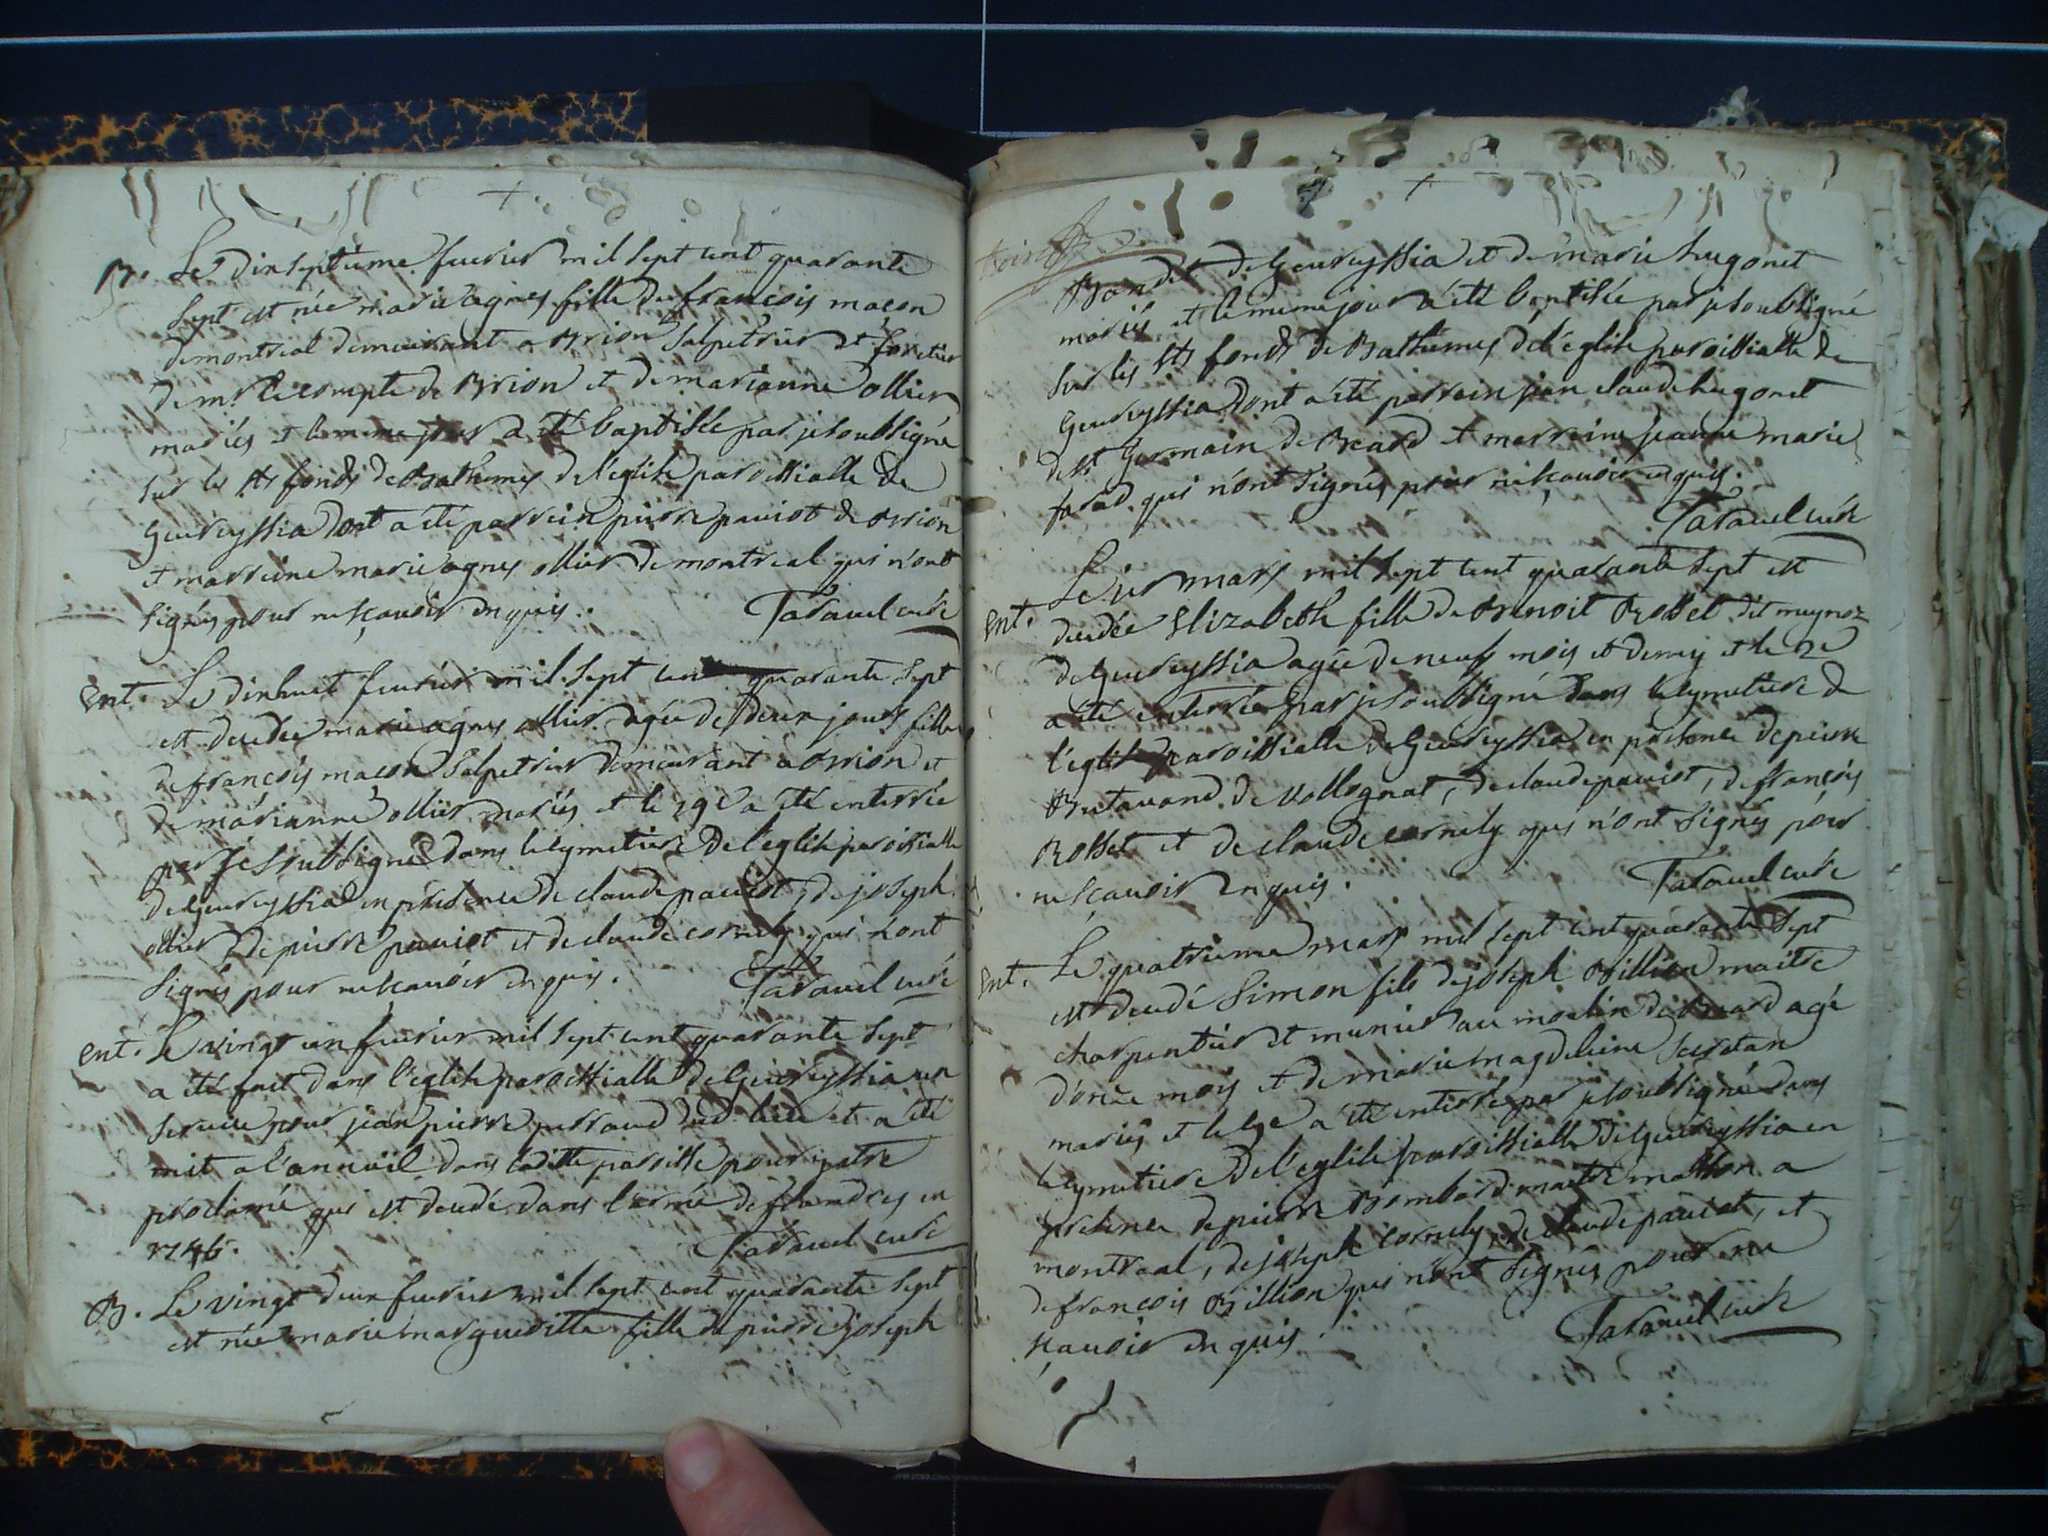 B. Le dixseptieme feurier mil sept cent quarante
sept est née marie agnes fille de françois maçon
de montreal demeurant a Brion salpetrier et
de mr. le compte de Brion et de marianne ollier
mariés et le meme jour a été baptisée par je soubsigné
sur les sts fonds de Bathemes de l'eglise paroissialle de
Geureyssia dont a été parrein pierre pauiot de Brion
et marreine marie agnes ollier de montreal qui n'ont
signés pour ne sçauoir enquis. Tarauel curé
Ent. Le dixhuit feurier mil sept cent quarante sept
est decedée marie agnes ollier agée de deux jours fille
de françois maçon salpetrier demeurant a Brion et
de marianne ollier mariés et le 19e a été enterrée
par je soubsigné dans le cymetiere de l'eglise paroissialle
de Geureyssia en presence de claude pauiot, de joseph
ollier, de pierre pauiot et de claude cornely qui n'ont
signés pour ne scauoir enquis. Tarauel curé
Ent. Le vingt un feurier mil sept cent quarante sept
a été fait dans l'eglise paroissialle de Geureyssia un
seruice pour jean pierre perraud dud. lieu et a été
mit a l'annüel dans laditte paroisse pour y etre
proclamé qui est decedé dans l'armée de flandres en
1746. Tarauel curé
B. Le vingt deux feurier mil sept cent quarante sept
est née marie margueritte fille de pierre joseph
Bondet de Geureyssia et de marie hugonet
mariés et le meme jour a été baptisée par je soubsigné
sur les sts fonds de Bathemes de l'eglise paroissialle de
Geureyssia dont a été parrein jean claude hugonet
de st Germain de Beard et marreine jeanne marie
farod qui n'ont signés pour ne scauoir enquis.
Tarauel curé
Ent. Le 1er mars mil sept cent quarante sept est
decedée Elizabeth fille de Benoit Rosset dit muynoz
de Geureyssia agée de neuf mois et demy et le 2e
a été enterrée par je soubsigné dans le cymetiere de
l'eglise paroissialle de Geureyssia en presence de pierre
Butauand de Vollognat, de claude pauiot, de françois
Rosset et de claude cornely qui n'ont signés pour
ne scauoir enquis. Tarauel curé
Ent. Le quatrieme mars mil sept cent quarante sept
est decedé Simon fils de joseph Billion maitre
charpentier et munier au moulin de Beard agé
d'onze mois et de marie magdeleine secretan
mariés et le 5e a été enterré par je soubsigné dans
le cymetiere de l'eglise paroissialle de Geureyssia en
presence de pierre Bombard maitre masson a
montreal, de joseph cornely, de claude pauiot, et
de françois Billion qui n'ont signés pour ne
scauoir enquis. Tarauel curé